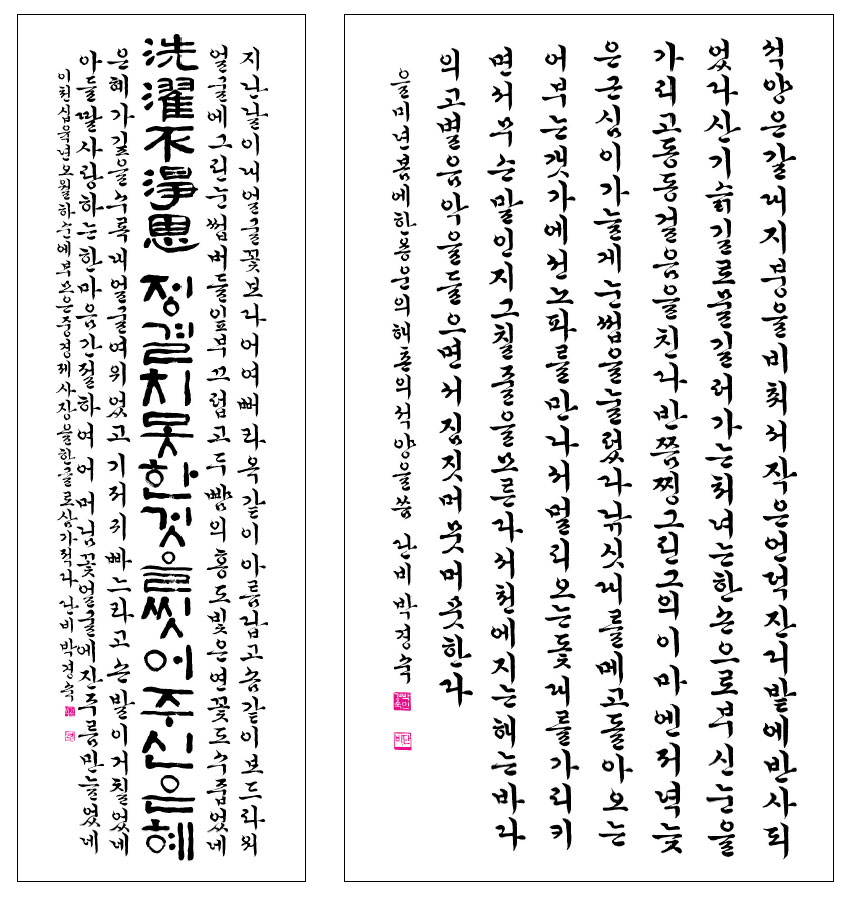 지난날이내얼굴꽃보라어여뻐라옥같이아름답고솜같이보드라워
얼굴에그린눈썹버들잎부끄럽고두뺨의홍도빛은연꽃도수줍었네
洗濯不淨恩 정결치못한것을씻어주신은혜
은혜가깊을수록내얼굴여위었고기저귀빠느라고손발이거칠었네
아들딸사랑하는한마음간절하여어머님꽃얼굴에잔주름만늘었네
이천십육년오월하순에부모은중경제사장을한글로삼가적다 난비 박경숙
석양은갈대지붕을비춰서작은언덕잔디밭에반사되
었다산기슭길로물길러가는처녀는한손으로부신눈을
가리고동동걸음을친다반쯤찡그린그의이마엔저녁늦
은근심이가늘게눈썹을눌렀다낚싯대를메고돌아오는
어부는갯가에선노파를만나서멀리오는돛대를가리키
면서무슨말인지그칠줄을모른다서천에지는해는바다
의고별음악을들으면서짐짓머뭇머뭇한다
을미년봄에한용운의해촌의석양을씀 난비 박경숙